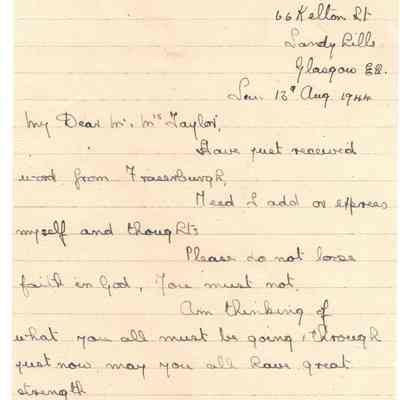 66 Kelton St
Sandy Hills
Glasgow E2.
Sun. 13th Aug. 1944
My Dear Mr. Mrs Taylor,
Have just received
word from Fraserburgh,
Need I add or express
myself and thoughts
Please do not lose
faith in God, You must not.
Am thinking of
what you all must be going, through
just now may you all have great
strength